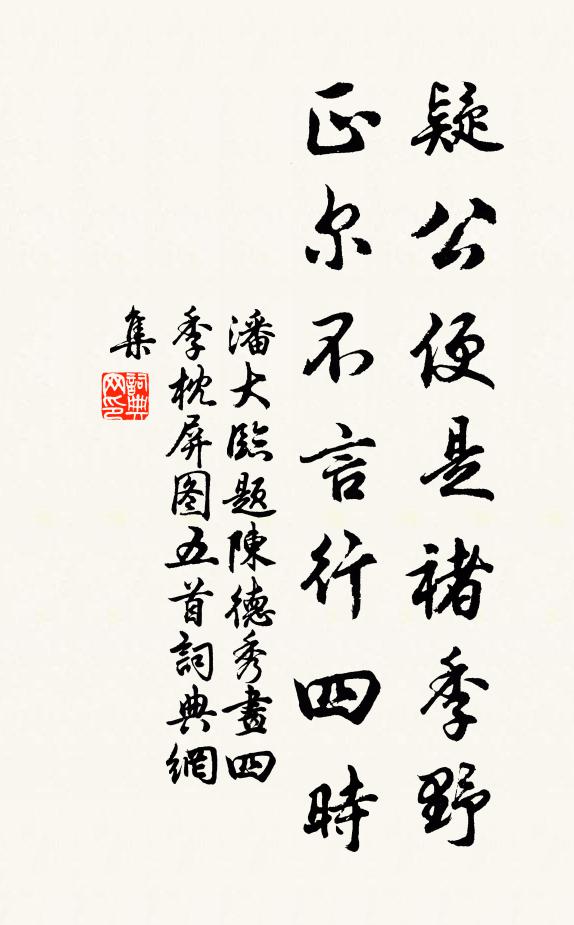 疑公便是褚季野
正尔不言行四時
潘大臨題陳德秀畫四
季枕屏图五首詞典網
集
詞典
网印